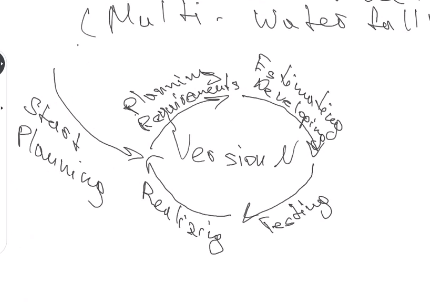 (Multi. Waterfall
Start
Planning
Planning
Requirements
Estimating
Developing
Version N
Testing